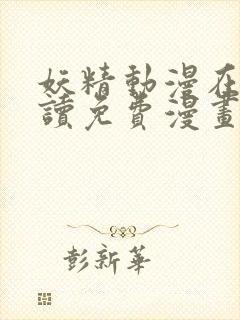 妖精動漫在
讀免費漫畫
彭新華